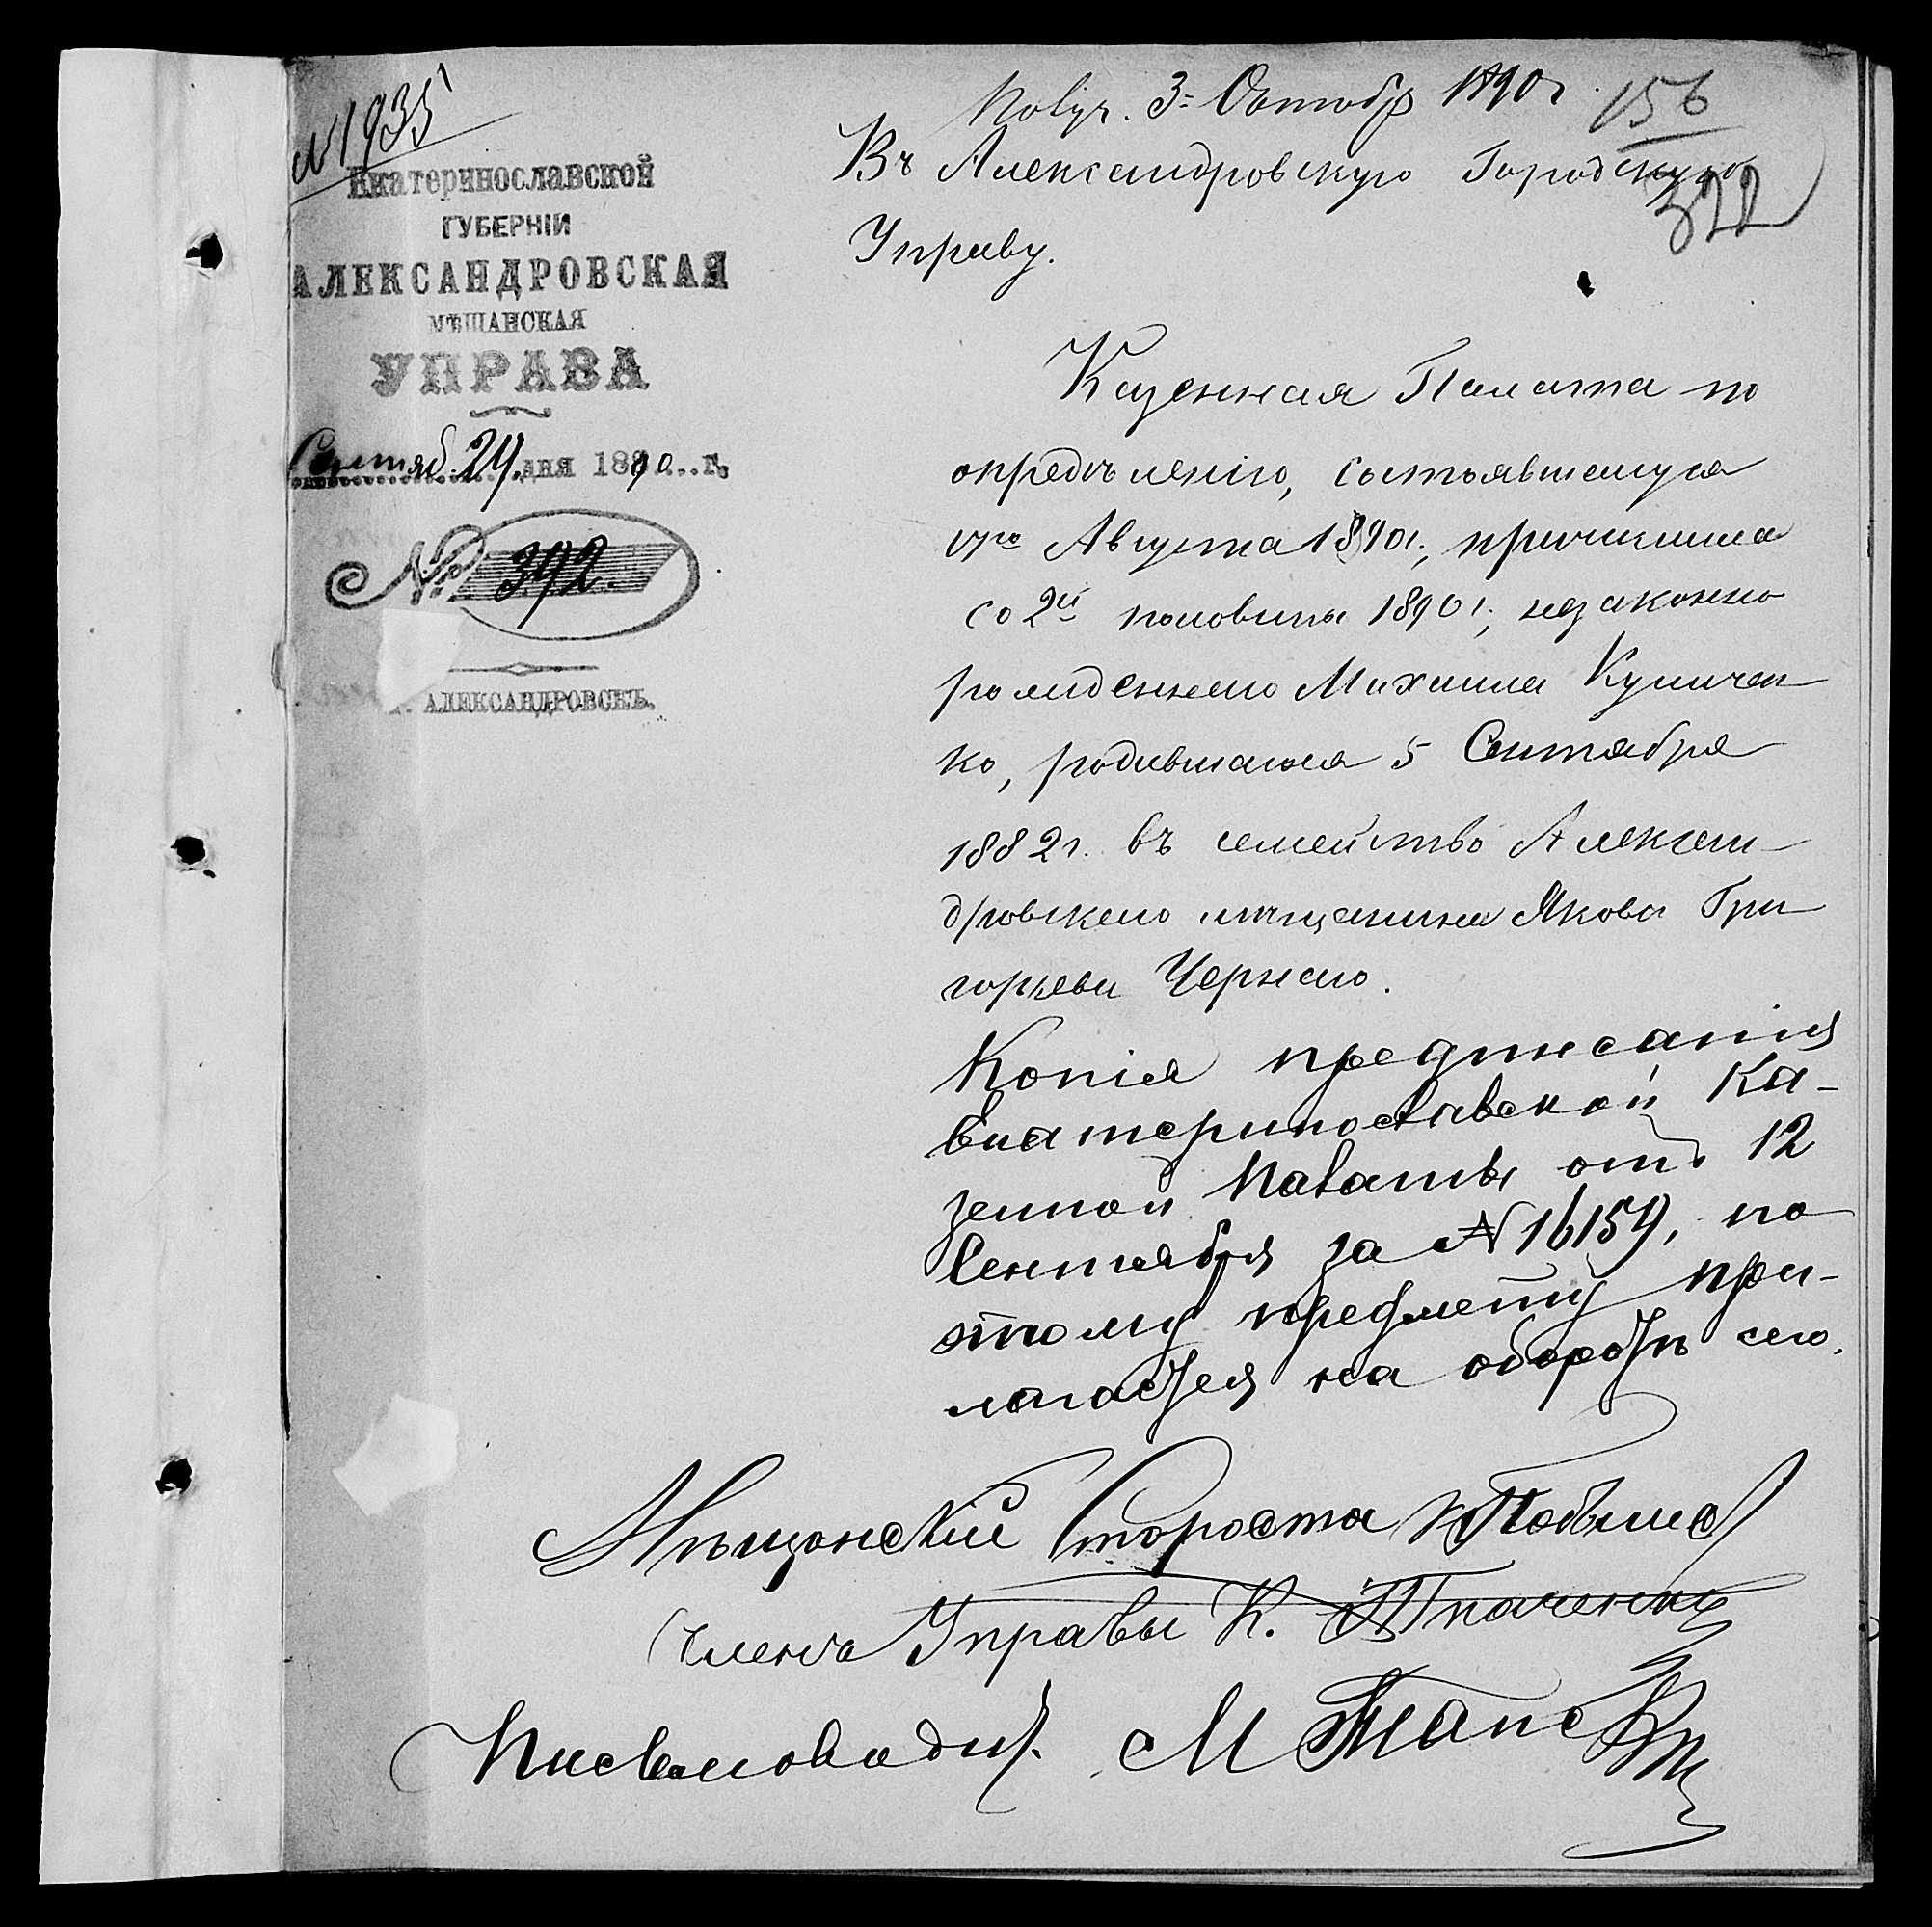 № 1935
Екатеринославской
ГУБЕРНІИ
АЛЕКСАНДРОВСКАЯ
МѢЩАНСКАЯ
УПРАВА
Сентяб. 24 дня 1890 г.
№ 392.
АЛЕКСАНДРОВСКЪ.
Получ. 3 Октобр 1890 г.
156
322
Въ Александровскую Городскую
Управу.
Казенная Палата по
опредѣленію, состоявшемуся
Августа 1890 г., причислила
со 2й половины 1890 г., незаконно
рожденнаго Михаила Куничен
ко, родившагося 5 Сентября
1882 г. въ семейство Алексан-
дровскаго мѣщанина Якова Гри
горьева Чернаго.
Копія предписанія
Екатеринославской Ка-
зенной Палаты отъ 12
Сентября за № 16159, по
этому предмету при-
лагается на оборотѣ сего.
Мѣщанскій Староста
Членъ Управы К. Ткаченко
Письмоводит. М